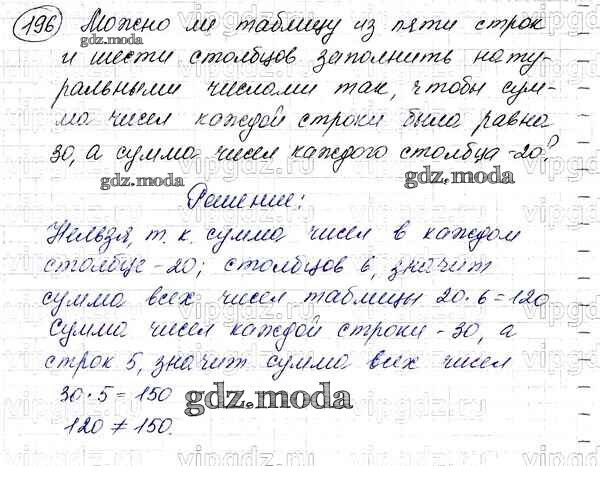 196 Можно ли таблицу из пяти строк
и шести столбцов заполнить нату-
ральными числами так, чтобы сум-
ма чисел каждой строки была равна
30, а сумма чисел каждого столбца -20?
Решение:
Нельзя, т. к. сумма чисел в каждом
столбце - 20; столбцов 6, значит
сумма всех чисел таблицы 20·6=120
Сумма чисел каждой строки - 30, а
строк 5, значит сумма всех чисел
30·5=150
120≠150.
gdz.moda
gdz.moda
gdz.moda
gdz.moda
vipgdz.ru